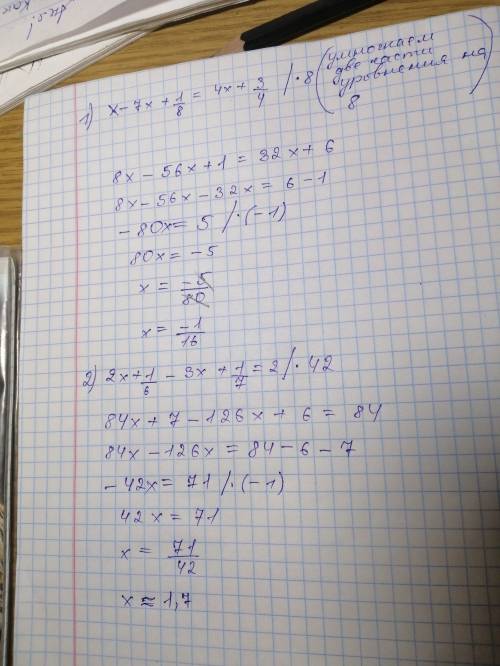 1) x - 7x + 1/8 = 4x + 3/4 / · 8 (умножаем
две части
уровнения на
8
8x - 56x + 1 = 32x + 6
8x - 56x - 32x = 6 - 1
- 80x = 5 / · (-1)
80x = -5
x = -5/80
x = -1/16
2) 2x + 1/6 - 3x + 1/7 = 2 / · 42
84x + 7 - 126x + 6 = 84
84x - 126x = 84 - 6 - 7
- 42x = 71 / · (-1)
42x = 71
x = 71/42
x ≈ 1,7